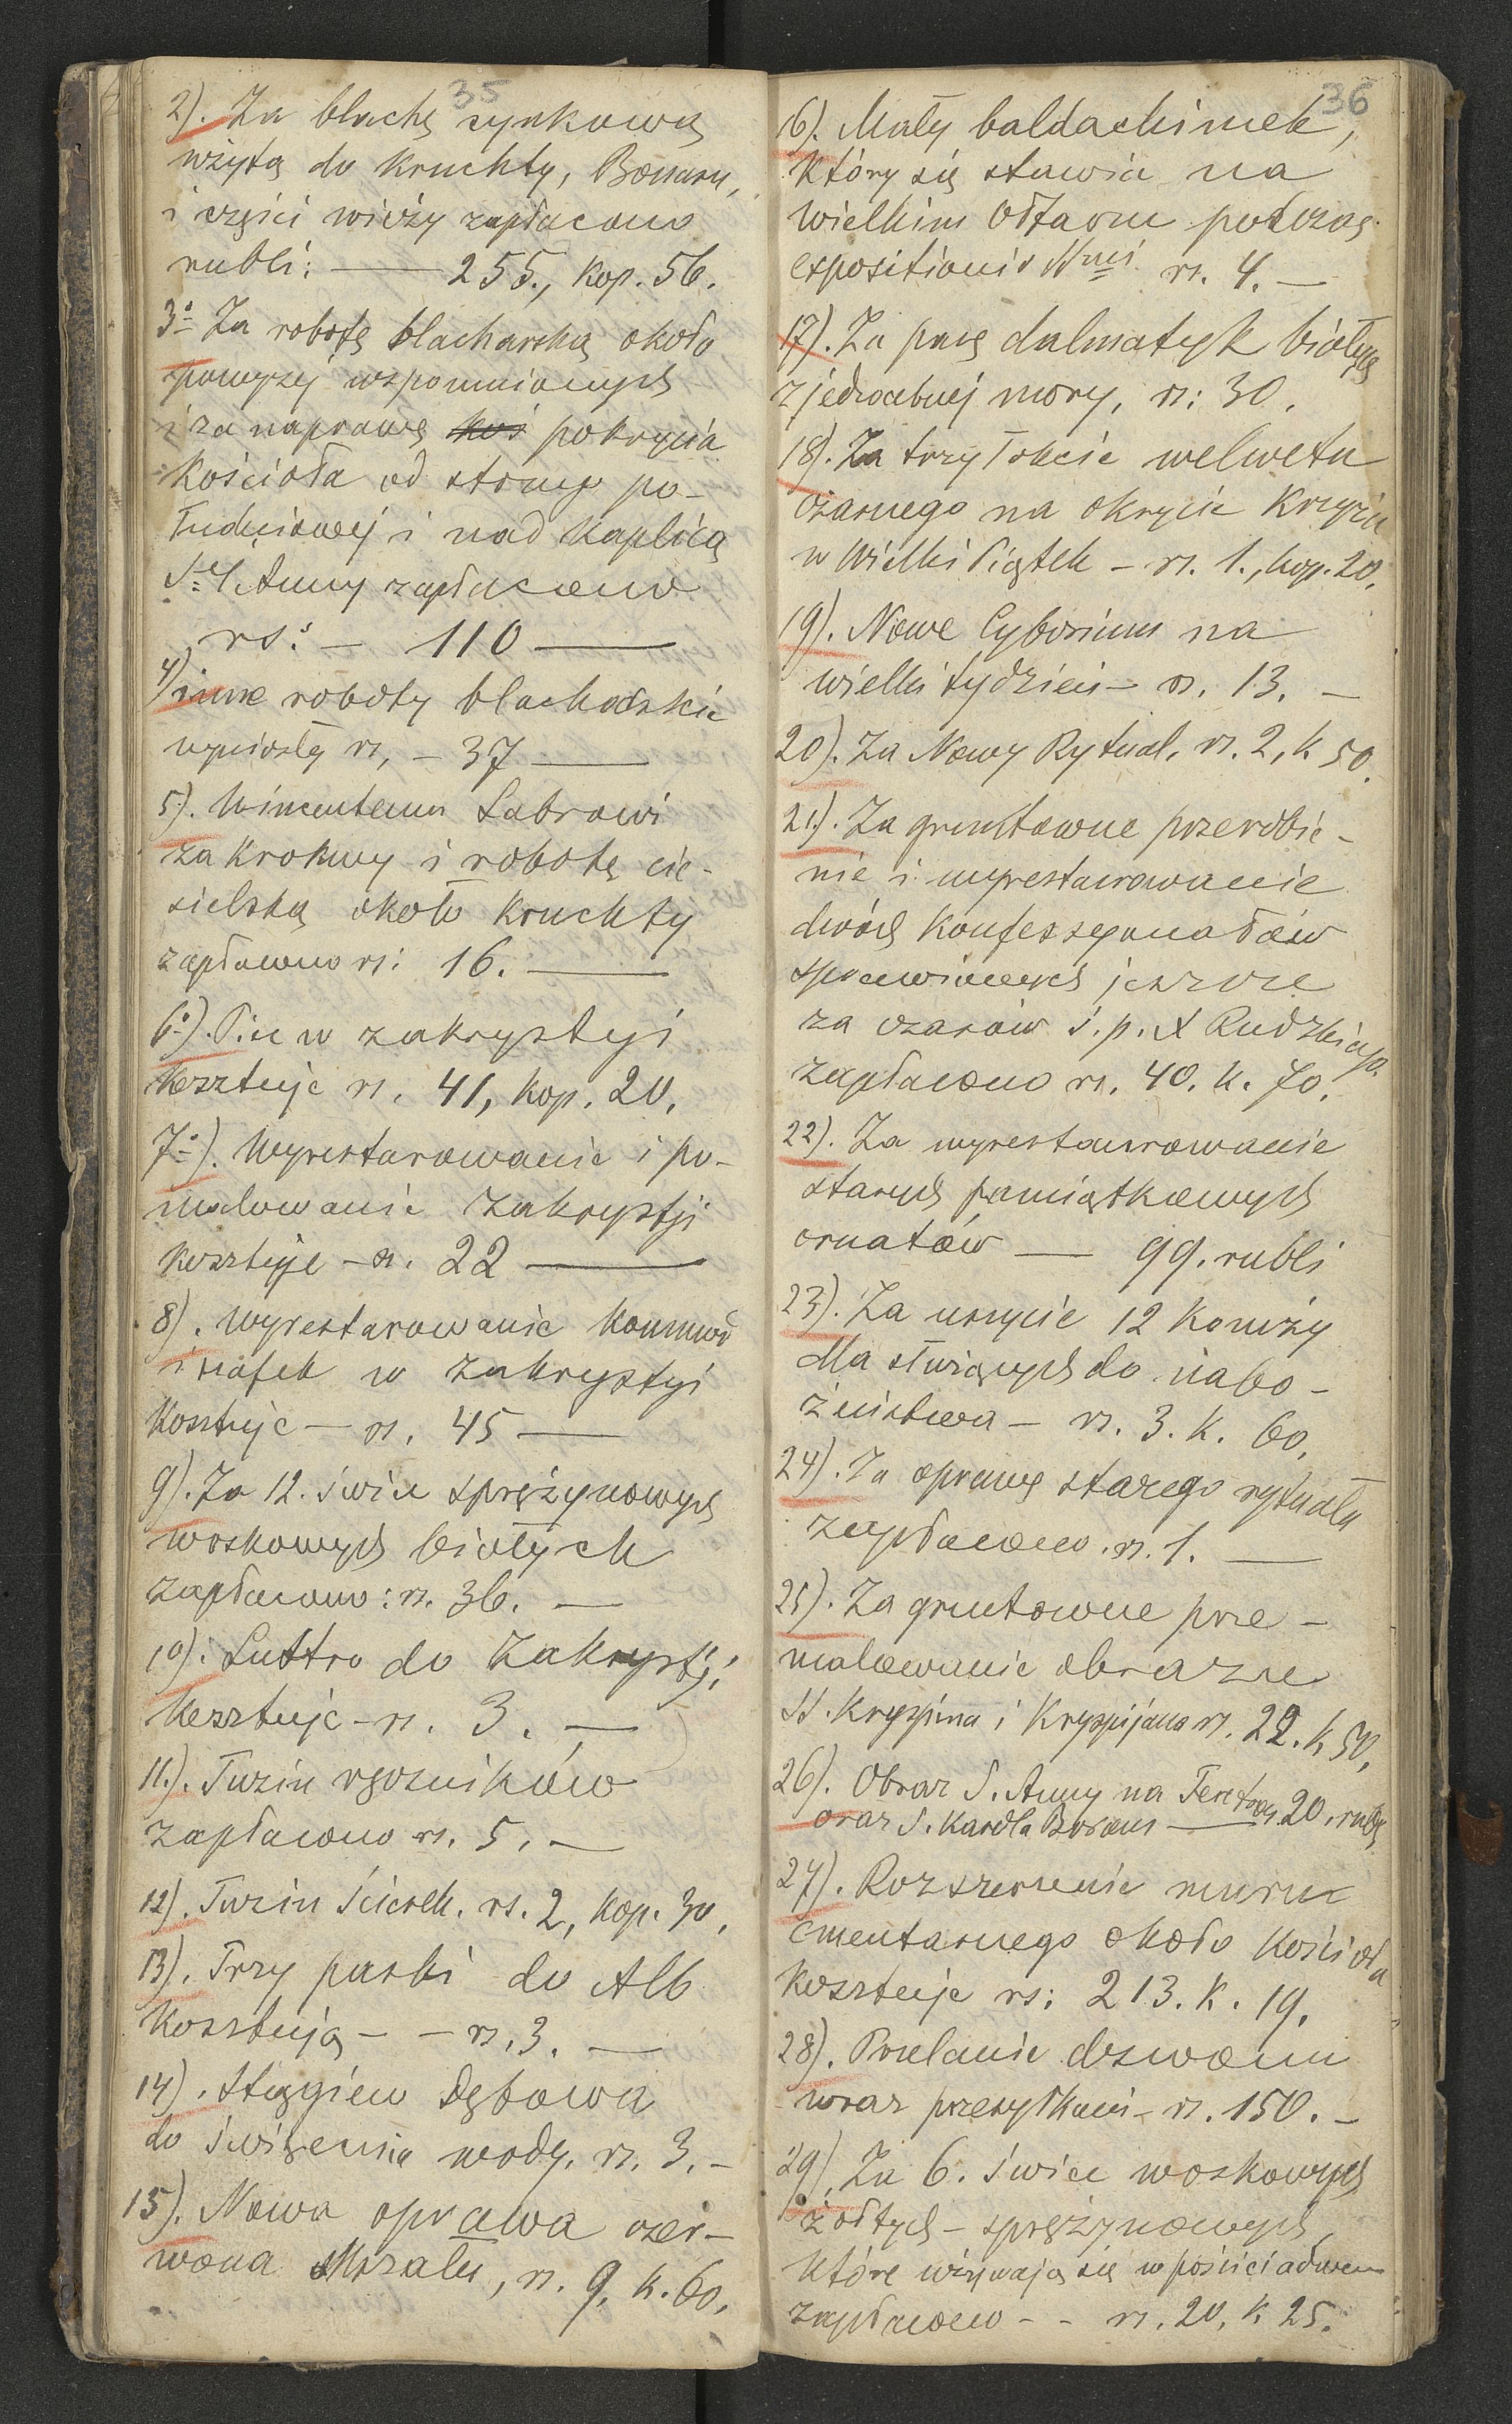 35
2). Za blachę cynkową
użytą do Kruchty, Bonaru,
i części wieży zapłacono
rubli: — 255., kop. 56.
3o Za robotę blacharską około
powyżej wspomnianych
i za naprawę koś pokrycia
Kościoła od strony po-
łudniowej i nad Kaplicą
S-ej Anny zapłacono
rs: — 110 —
4) inne roboty blacharskie
wyniosły rs, — 37 —
5). Wincentemu Sabrowi
za Krokwy i robotę cie-
sielską około Kruchty
zapłacono rs: 16. —
6o). Piec w zakrystyi
Kosztuje rs. 41, kop. 20.
7o). Wyrestarowanie i po-
malowanie Zakrystji
kosztuje — rs. 22 —
8). Wyrestarowanie Kommód
i szafek w zakrystyi
Kosztuje — rs. 45 —
9). Za 12. świec sprężynowych
woskowych białych
zapłacono: rs. 36. —
10). Lustro do Zakrystji
Kosztuje — rs. 3. —
11.). Tuzin ręczników
zapłacono rs. 5. —
12). Tuzin Ścierek. rs. 2, kop. 30.
13). Trzy paski do Alb
Kosztują — — rs. 3. —
14). Stągiew dębowa
do święcenia wody. rs. 3. —
15). Nowa oprawa czer-
wona Mszału, rs. 9. k. 60.
36
16). Mały baldachimek,
Który się stawia na
wielkim Ołtarzu podczas
expositionis SSmi rs. 4. —
17). Za parę dalmatyk białych
z jedwabnej mory, rs: 30.
18). Za trzy łokcie welwetu
czarnego na okrycie Krzyża
w Wielki Piątek — rs. 1., kop. 20.
19). Nowe Cyborium na
wielki tydzień — rs. 13. —
20). Za Nowy Rytuał. rs. 2, k 50.
21). Za gruntowne przerobie-
nie i wyrestaurowanie
dwóch Konfessyonałów
sprawionych jeszcze
za czasów ś. p. X Rudzkiego.
zapłacono rs. 40. k. 70.
22). Za wyrestaurowanie
starych pamiątkowych
ornatów — 99. rubli
23). Za uszycie 12 Komży
dla służących do nabo-
żeństwa — rs. 3. k. 60.
24). Za oprawę starego rytuału
zapłacono. rs. 1. —
25). Za gruntowne prze-
malowanie obrazu
SS. Kryspina i Kryspijana rs. 22. k 50.
26). Obraz S. Anny na Feretron
oraz S. Karola Borom — rs. 20. rubli
27). Rozszerzenie muru
cmentarnego około Kościoła
Kosztuje rs: 213. k. 19.
28). Przelanie dzwonu
wraz przesyłkami — rs. 150. —
29). Za 6. świec woskowych
żółtych — sprężynowych,
które używają się w poście i adwen
zapłacono — — rs. 20. k 25.